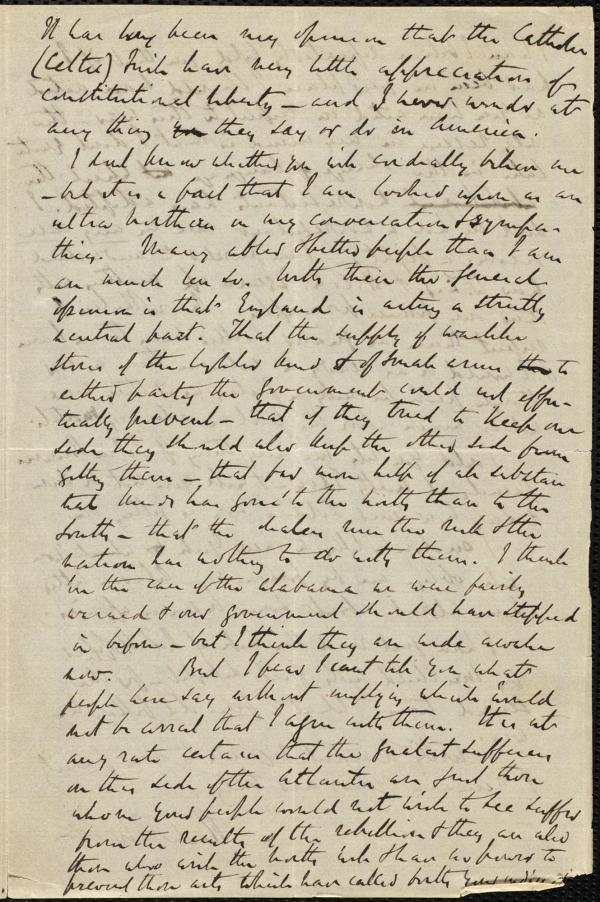 It has long been my opinion that the Catholic
(Celtic) Irish have very little appreciation of
constitutional liberty – and I never wonder at
any thing they say or do in America.
I don't know whether you will cordially believe me
– but it is a fact that I am looked upon as an
ultra Northern in my conversation & sympa-
thies. Many abler & better people than I am
are much less so. With them the general
opinion is that England is acting a strictly
neutral part. That the supply of warlike
stores of the lighter kind & of small arms to
either party the government could not effec-
tually prevent – that if they tried to keep one
side they should also keep the other side from
getting them – that far more help of all substan
tial kinds has gone to the north than to the
South – that the dealers run the risk & the
nation has nothing to do with them. I think
in the case of the Alabama we were fairly
warned & our government should have stepped
in before – but I think they are wide awake
now. But I fear I can't tell you what
people here say without implying which would
not be correct that I agree with them. It is at
any rate certain that the greatest sufferers
on this side of the Atlantic are just those
whom your people would not wish to see suffer
from the results of the rebellion & they are also
those who wish the north well & have no power to
prevent those acts which have called forth your